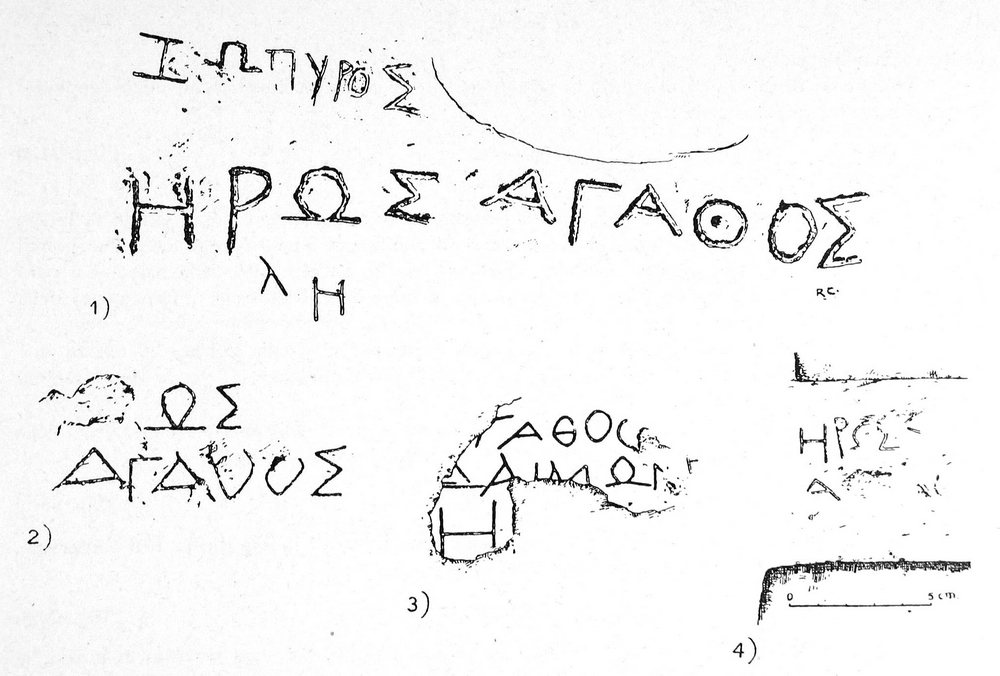 ΖΩΠΥΡΟΣ
ΗΡΩΣ ΑΓΑΘΟΣ
λ Η
R.C.
1)
ΩΣ
ΑΓΑΘΟΣ
2)
ΓΑΘΟΣ
ΔΑΙΜΩΝ
Η
3)
ΗΡΩΣ
Α
0 5 cm
4)